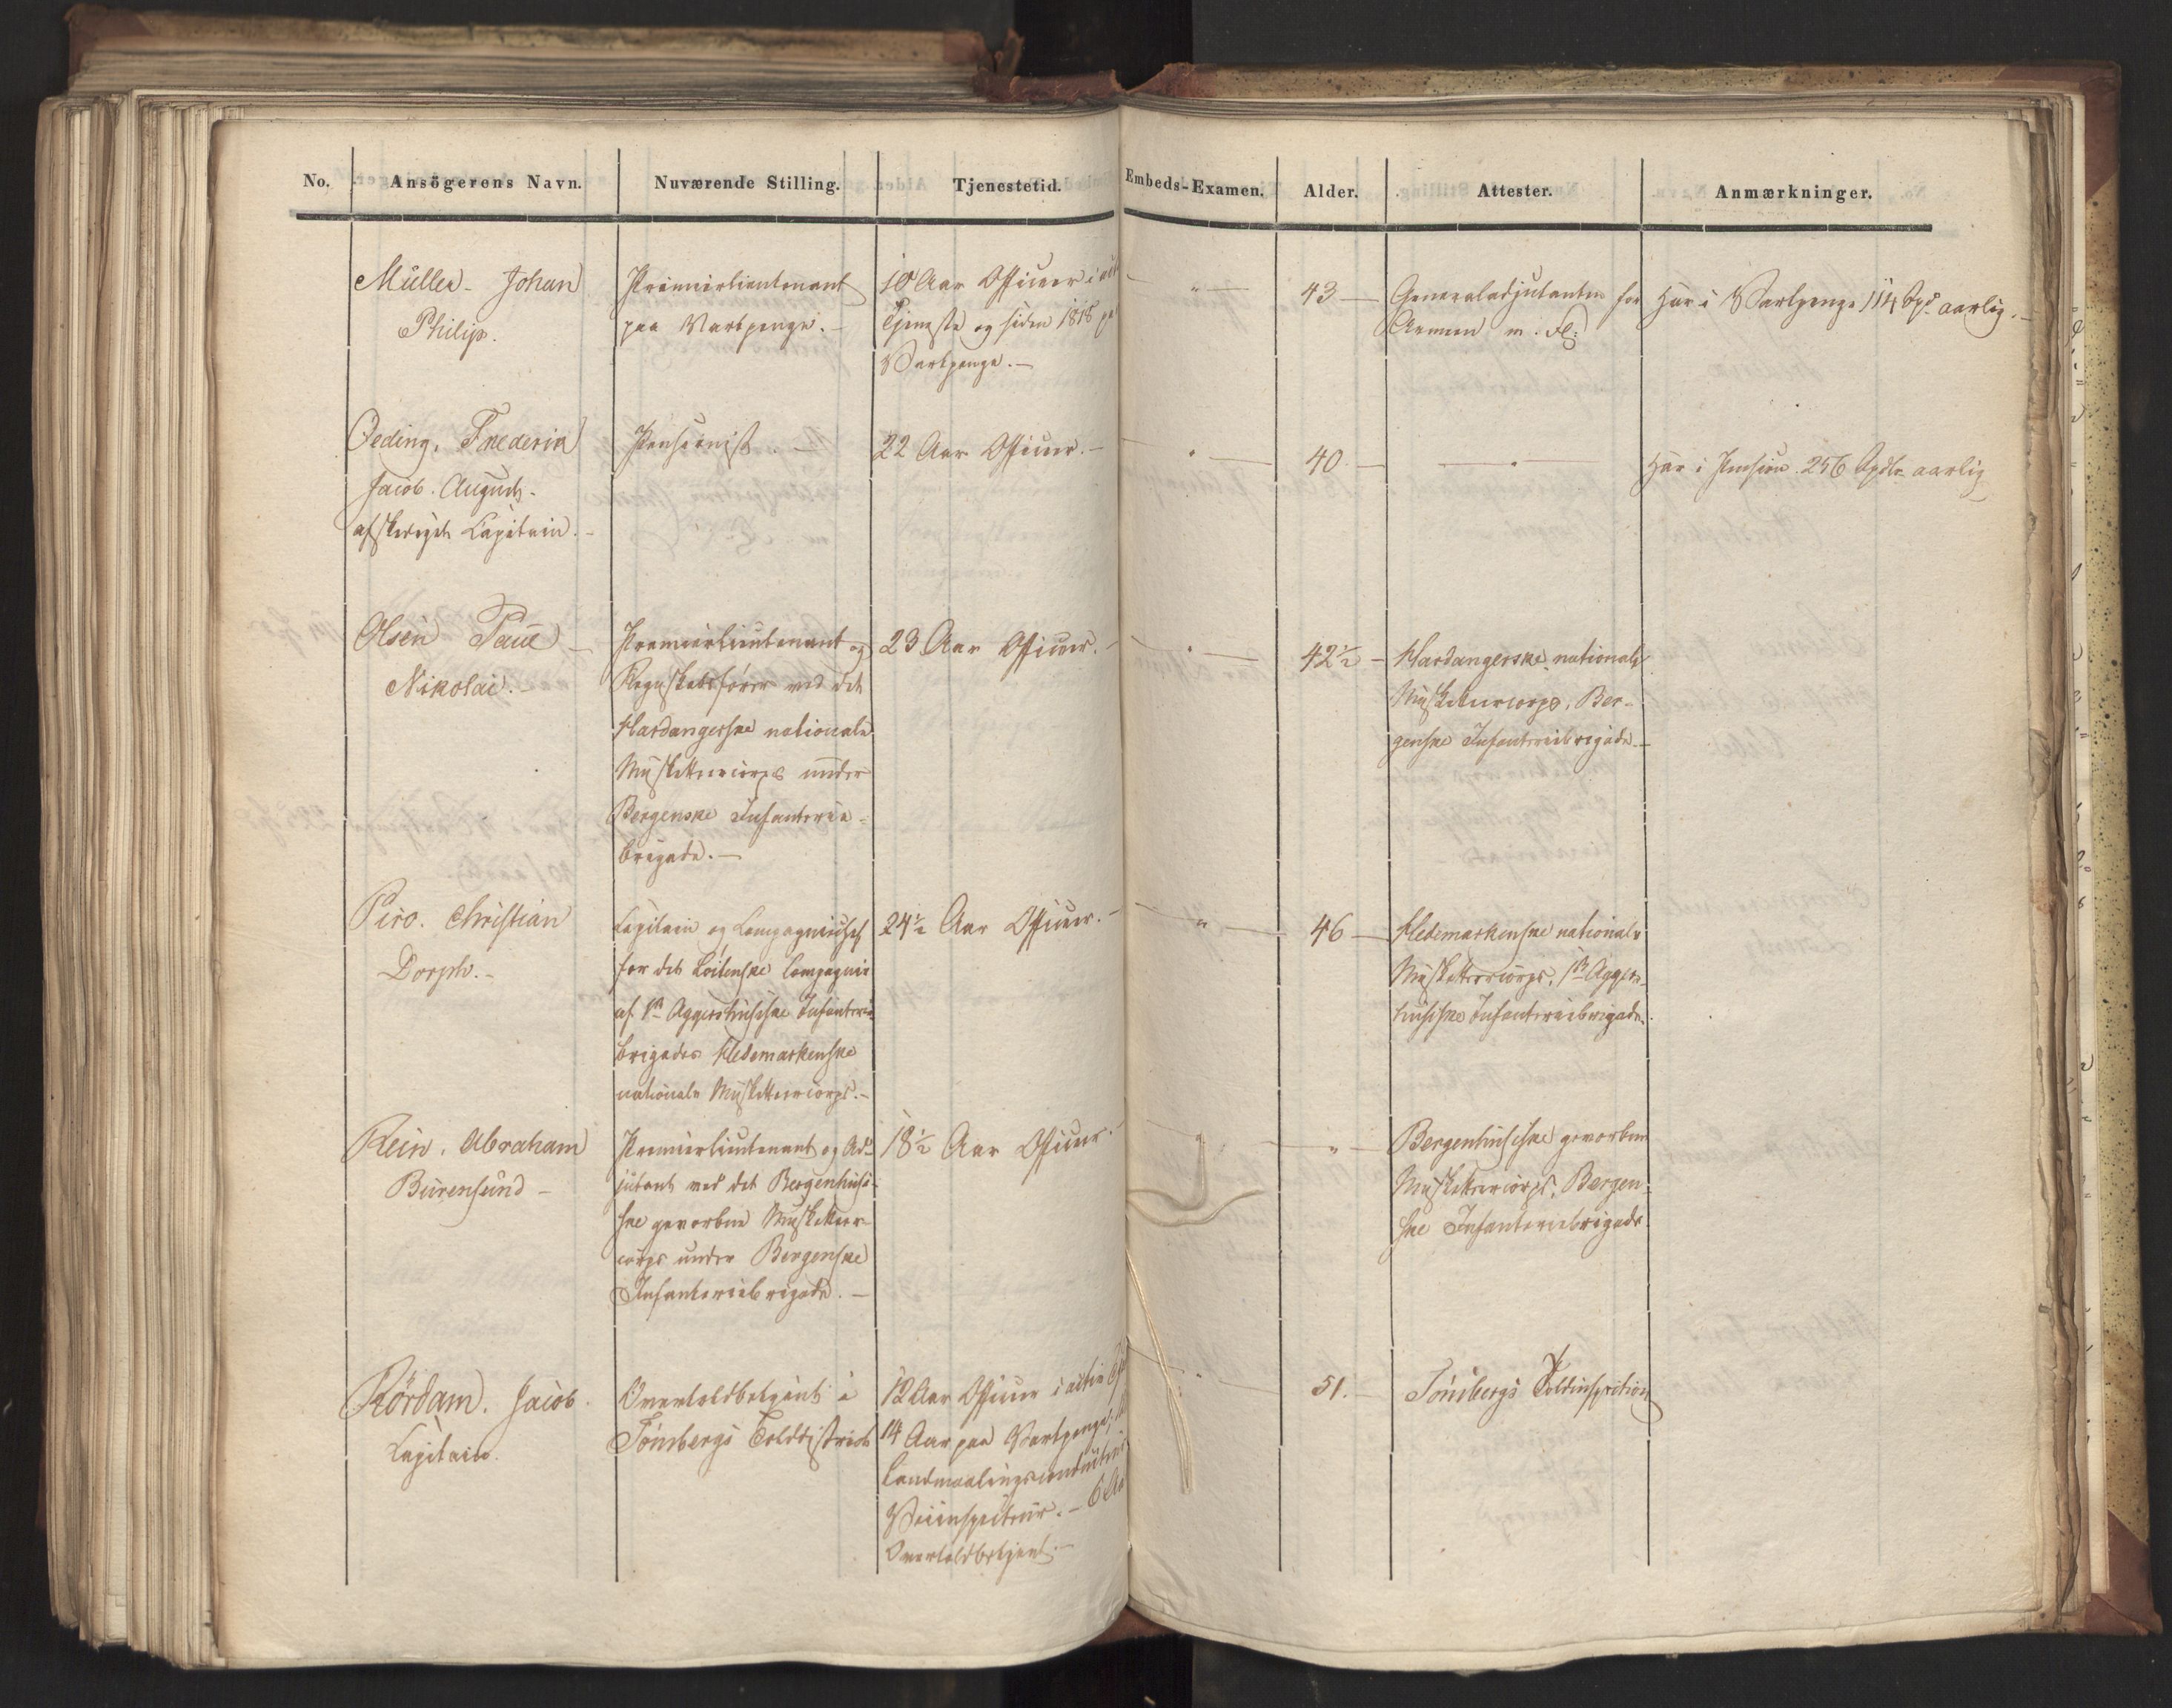 No. Ansögerens Navn. Nuværende Stilling. Tjenestetid. Embeds-Examen. Alder. Attester. Anmærkninger.
Müller Johan
Philip.
Premierlieutenant
paa Vartpenge.
10 Aar Officier i
Tjeneste og siden 1818
Vartpenge.
"
43
Generaladjutanten for
Armeen m. Fl:
Har i Vartpenge 114 Spd aarlig.
Oeding, Frederik
Jacob August
afskediget Capitain.
Pensionist.
22 Aar Officier.
"
40.
"
Har i Pension 256 Spdlr aarlig
Olsen Paul
Nikolai.
Premierlieutenant og
Regnskabsfører ved det
Hardangerske nationale
Musketteercorps under
Bergenske Infanterie-
brigade.
23 Aar Officier.
"
42½
Hardangerske nationale
Musketteercorps, Ber-
genske Infanteriebrigade
Piro. Christian
Dorph.
Capitain og Compagniechef
for det Löitenske Compagnie
af 1ste Aggershusiske Infanterie
brigades Hedemarkenske
nationale Musketteercorps.
24½ Aar Officier.
"
46
Hedemarkenske nationale
Musketteercorps, 1ste Aggers-
husiske Infanteriebrigade.
Rein, Abraham
Bürensund
Premierlieutenant og Ad-
jutant ved det Bergenhusi-
ske gevorbne Musketteer-
corps under Bergenske
Infanteriebrigade.
18½ Aar Officier.
"
"
Bergenhusiske gevorbne
Musketteercorps, Bergen-
ske Infanteriebrigade
Rördam. Jacob.
Capitain.
Overtoldbetjent i
Tönsbergs Tolddistrict
12 Aar Officier i activ
14 Aar paa Vartpenge,
Landmaalingsconducteur
Veiinspecteur. 6 Aar
Overtoldbetjent.
"
51.
Tönsbergs Toldinspection